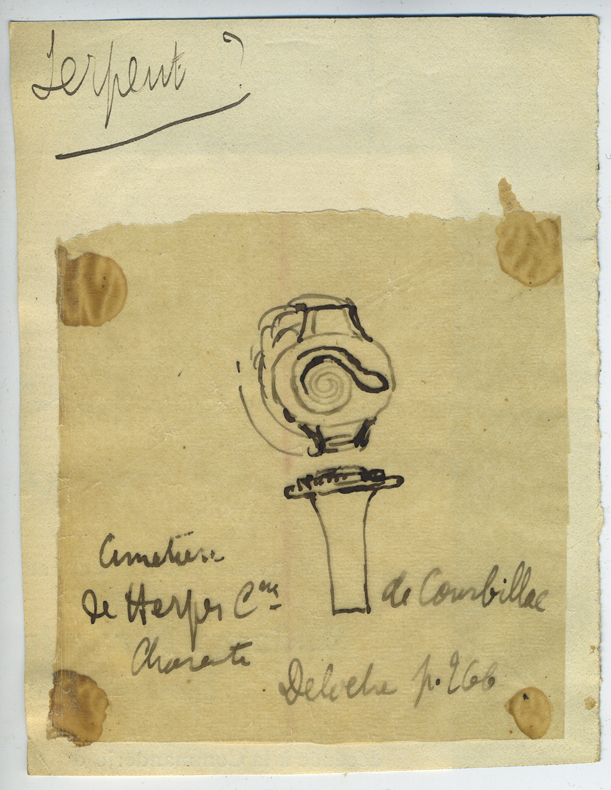 Serpent ?
Cimetière
de Herpes Cne de Courbillac
Charente
Deloche p. 266